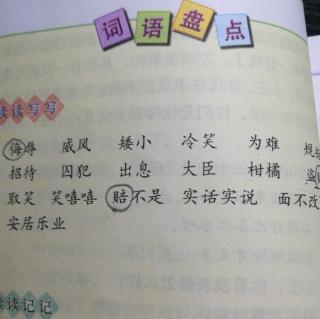 词语盘点
读读写写
侮辱 威风 矮小 冷笑 为难 规
招待 囚犯 出息 大臣 柑橘 盗
取笑 笑嘻嘻 赔不是 实话实说 面不改
安居乐业
读读记记